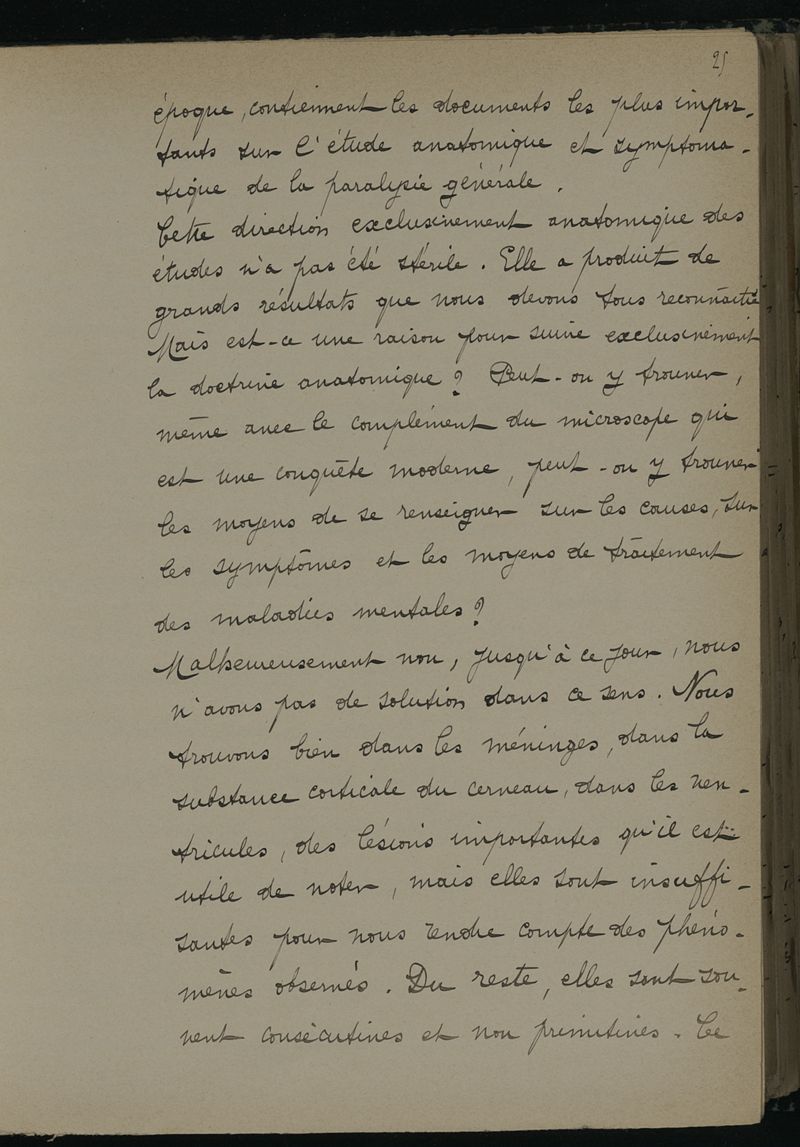 25
époque, contiennent les documents les plus impor-
tants sur l'étude anatomique et symptoma-
tique de la paralysie générale.
Cette direction exclusivement anatomique des
études n'a pas été stérile. Elle a produit de
grands résultats que nous devons tous reconnaître
Mais est-ce une raison pour suivre exclusivement
la doctrine anatomique ? Peut-on y trouver,
même avec le complément du microscope qui
est une conquête moderne, peut-on y trouver
les moyens de se renseigner sur les causes, sur
les symptômes et les moyens de traitement
des maladies mentales ?
Malheureusement non, jusqu'à ce jour, nous
n'avons pas de solution dans ce sens. Nous
trouvons bien dans les méninges, dans la
substance corticale du cerveau, dans les ven-
tricules, des lésions importantes qu'il est
utile de noter, mais elles sont insuffi-
santes pour nous rendre compte des phéno-
mènes observés. Du reste, elles sont sou-
vent consécutives et non primitives. Ce